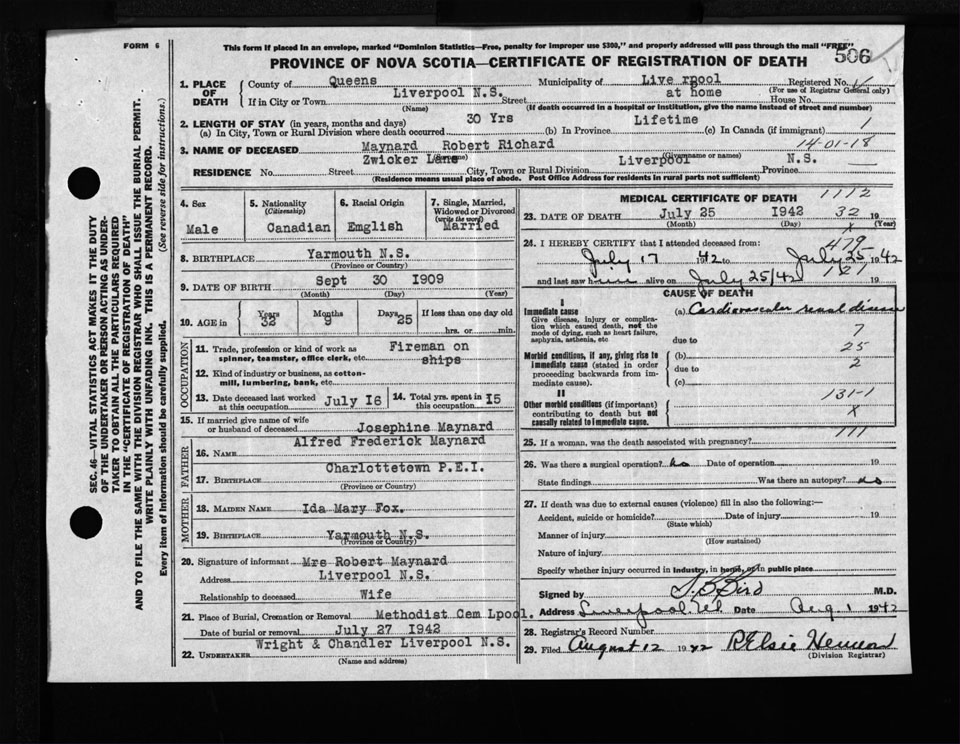 FORM 6
This form if placed in an envelope, marked "Dominion Statistics—Free, penalty for improper use $300," and properly addressed will pass through the mail "FREE"
506
PROVINCE OF NOVA SCOTIA—CERTIFICATE OF REGISTRATION OF DEATH
SEC. 46—VITAL STATISTICS ACT MAKES IT THE DUTY
OF THE UNDERTAKER OR PERSON ACTING AS UNDER-
TAKER TO OBTAIN ALL THE PARTICULARS REQUIRED
IN THE "CERTIFICATE OF REGISTRATION OF DEATH"
AND TO FILE THE SAME WITH THE DIVISION REGISTRAR WHO SHALL ISSUE THE BURIAL PERMIT.
WRITE PLAINLY WITH UNFADING INK. THIS IS A PERMANENT RECORD.
Every item of Information should be carefully supplied. (See reverse side for instructions.)
1. PLACE OF DEATH
County of Queens Municipality of Live rpool Registered No.
(For use of Registrar General only)
If in City or Town Liverpool N.S. Street at home House No.
(Name) (If death occurred in a hospital or institution, give the name instead of street and number)
2. LENGTH OF STAY (in years, months and days)
(a) In City, Town or Rural Division where death occurred 30 Yrs (b) In Province Lifetime (c) In Canada (if immigrant) 1
3. NAME OF DECEASED Maynard Robert Richard 14-01-18
(Surname) (Given name or names)
RESIDENCE No. Zwicker Lane Street City, Town or Rural Division Liverpool Province N.S.
(Residence means usual place of abode. Post Office Address for residents in rural parts not sufficient)
4. Sex
Male
5. Nationality
(Citizenship)
Canadian
6. Racial Origin
Emglish
7. Single, Married, Widowed or Divorced
(write the word)
Married
8. BIRTHPLACE Yarmouth N.S.
(Province or Country)
9. DATE OF BIRTH Sept 30 1909
(Month) (Day) (Year)
10. AGE in Years 32 Months 9 Days 25 If less than one day old
hrs. or min.
OCCUPATION
11. Trade, profession or kind of work as spinner, teamster, office clerk, etc. Fireman on ships
12. Kind of industry or business, as cotton-mill, lumbering, bank, etc.
13. Date deceased last worked at this occupation July I6
14. Total yrs. spent in this occupation I5
15. If married give name of wife or husband of deceased Josephine Maynard
FATHER
16. NAME Alfred Frederick Maynard
17. BIRTHPLACE Charlottetown P.E.I.
(Province or Country)
MOTHER
18. MAIDEN NAME Ida Mary Fox.
19. BIRTHPLACE Yarmouth N.S.
(Province or Country)
20. Signature of informant Mrs Robert Maynard
Address Liverpool N.S.
Relationship to deceased Wife
21. Place of Burial, Cremation or Removal Methodist Cem Lpool.
Date of burial or removal July 27 I942
22. UNDERTAKER Wright & Chandler Liverpool N.S.
(Name and address)
MEDICAL CERTIFICATE OF DEATH 1112
23. DATE OF DEATH July 25 I942 32 19
(Month) (Day) (Year)
x
24. I HEREBY CERTIFY that I attended deceased from: 479
July 17 1942 to July 25 1942
and last saw h alive on July 25/42 121 19
CAUSE OF DEATH
I
Immediate cause
Give disease, injury or complication which caused death, not the mode of dying, such as heart failure, asphyxia, asthenia, etc
(a) Cardiovascular renal disease
7
due to
25
Morbid conditions, if any, giving rise to immediate cause (stated in order proceeding backwards from immediate cause).
(b)
2
due to
(c)
II
Other morbid conditions (if important) contributing to death but not causally related to immediate cause.
131-1
x
111
25. If a woman, was the death associated with pregnancy?
26. Was there a surgical operation? no Date of operation 19
State findings Was there an autopsy? no
27. If death was due to external causes (violence) fill in also the following:—
Accident, suicide or homicide? Date of injury 19
(State which)
Manner of injury
(How sustained)
Nature of injury
Specify whether injury occurred in industry, in home, or in public place
Signed by S. B. Bird M.D.
Address Liverpool N.S. Date Aug 1 1942
28. Registrar's Record Number
29. Filed August 12 1942 Elsie
(Division Registrar)